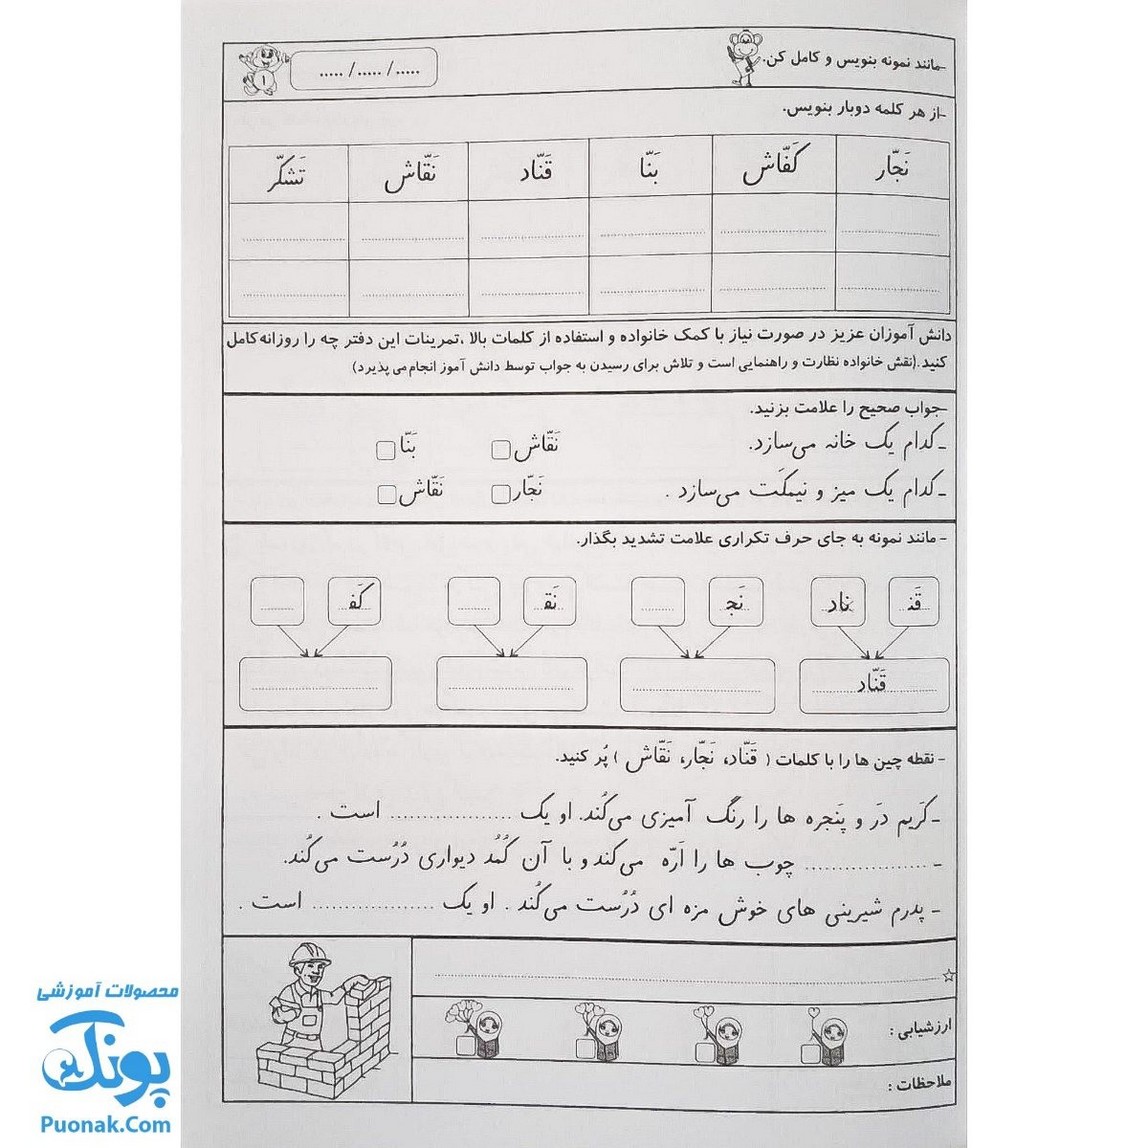 -مانند نمونه بنویس و کامل کن.
...../ ...../ .....
۱
-از هر کلمه دوبار بنویس.
نَجّار کَفّاش بَنّا قَنّاد نَقّاش تَشَکّر
دانش آموزان عزیز در صورت نیاز با کمک خانواده و استفاده از کلمات بالا ،تمرینات این دفتر چه را روزانه کامل
کنید.(نقش خانواده نظارت و راهنمایی است و تلاش برای رسیدن به جواب توسط دانش آموز انجام می پذیرد)
-جواب صحیح را علامت بزنید.
ـ کدام یک خانه می‌سازد. نَقّاش بَنّا
ـ کدام یک میز و نیمکَت می‌سازد . نَجّار نَقّاش
- مانند نمونه به جای حرف تکراری علامت تشدید بگذار.
قَنـ ناد نَجـ ........ نَقـ ........ کَفـ ........
قَنّاد
- نقطه چین ها را با کلمات ( قَنّاد، نَجّار، نَقّاش ) پُر کنید.
ـ کَریم دَر و پَنجره ها را رنگ آمیزی می‌کُند. او یک .................... است .
ـ .................... چوب ها را اَرّه می‌کند و با آن کُمُد دیواری دُرُست می‌کُند.
ـ پدرم شیرینی های خوش مزه ای دُرُست می‌کُند . او یک .................... است .
ارزشیابی :
ملاحظات :
محصولات آموزشی
پونک
Puonak.Com